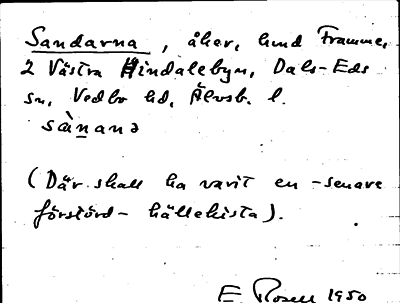 Sandarna, åker, hmd Framme,
2 Västra Hindalebyn, Dals-Eds
sn, Vedbo hd, Älvsb. l.
sànanə
(Där skall ha varit en - senare
förstörd - hällekista).
E. Rosell 1950